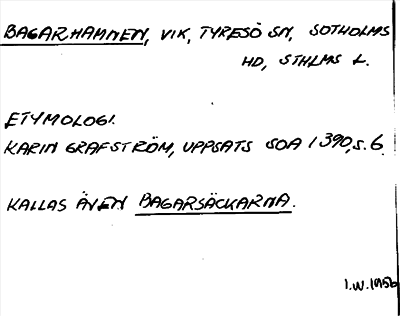 BAGARHAMNEN, VIK, TYRESÖ SN, SOTHOLMS
HD, STHLMS L.
ETYMOLOGI.
KARIN GRAFSTRÖM, UPPSATS SOA 1390, S. 6.
KALLAS ÄVEN BAGARSÄCKARNA.
I.W. 1956